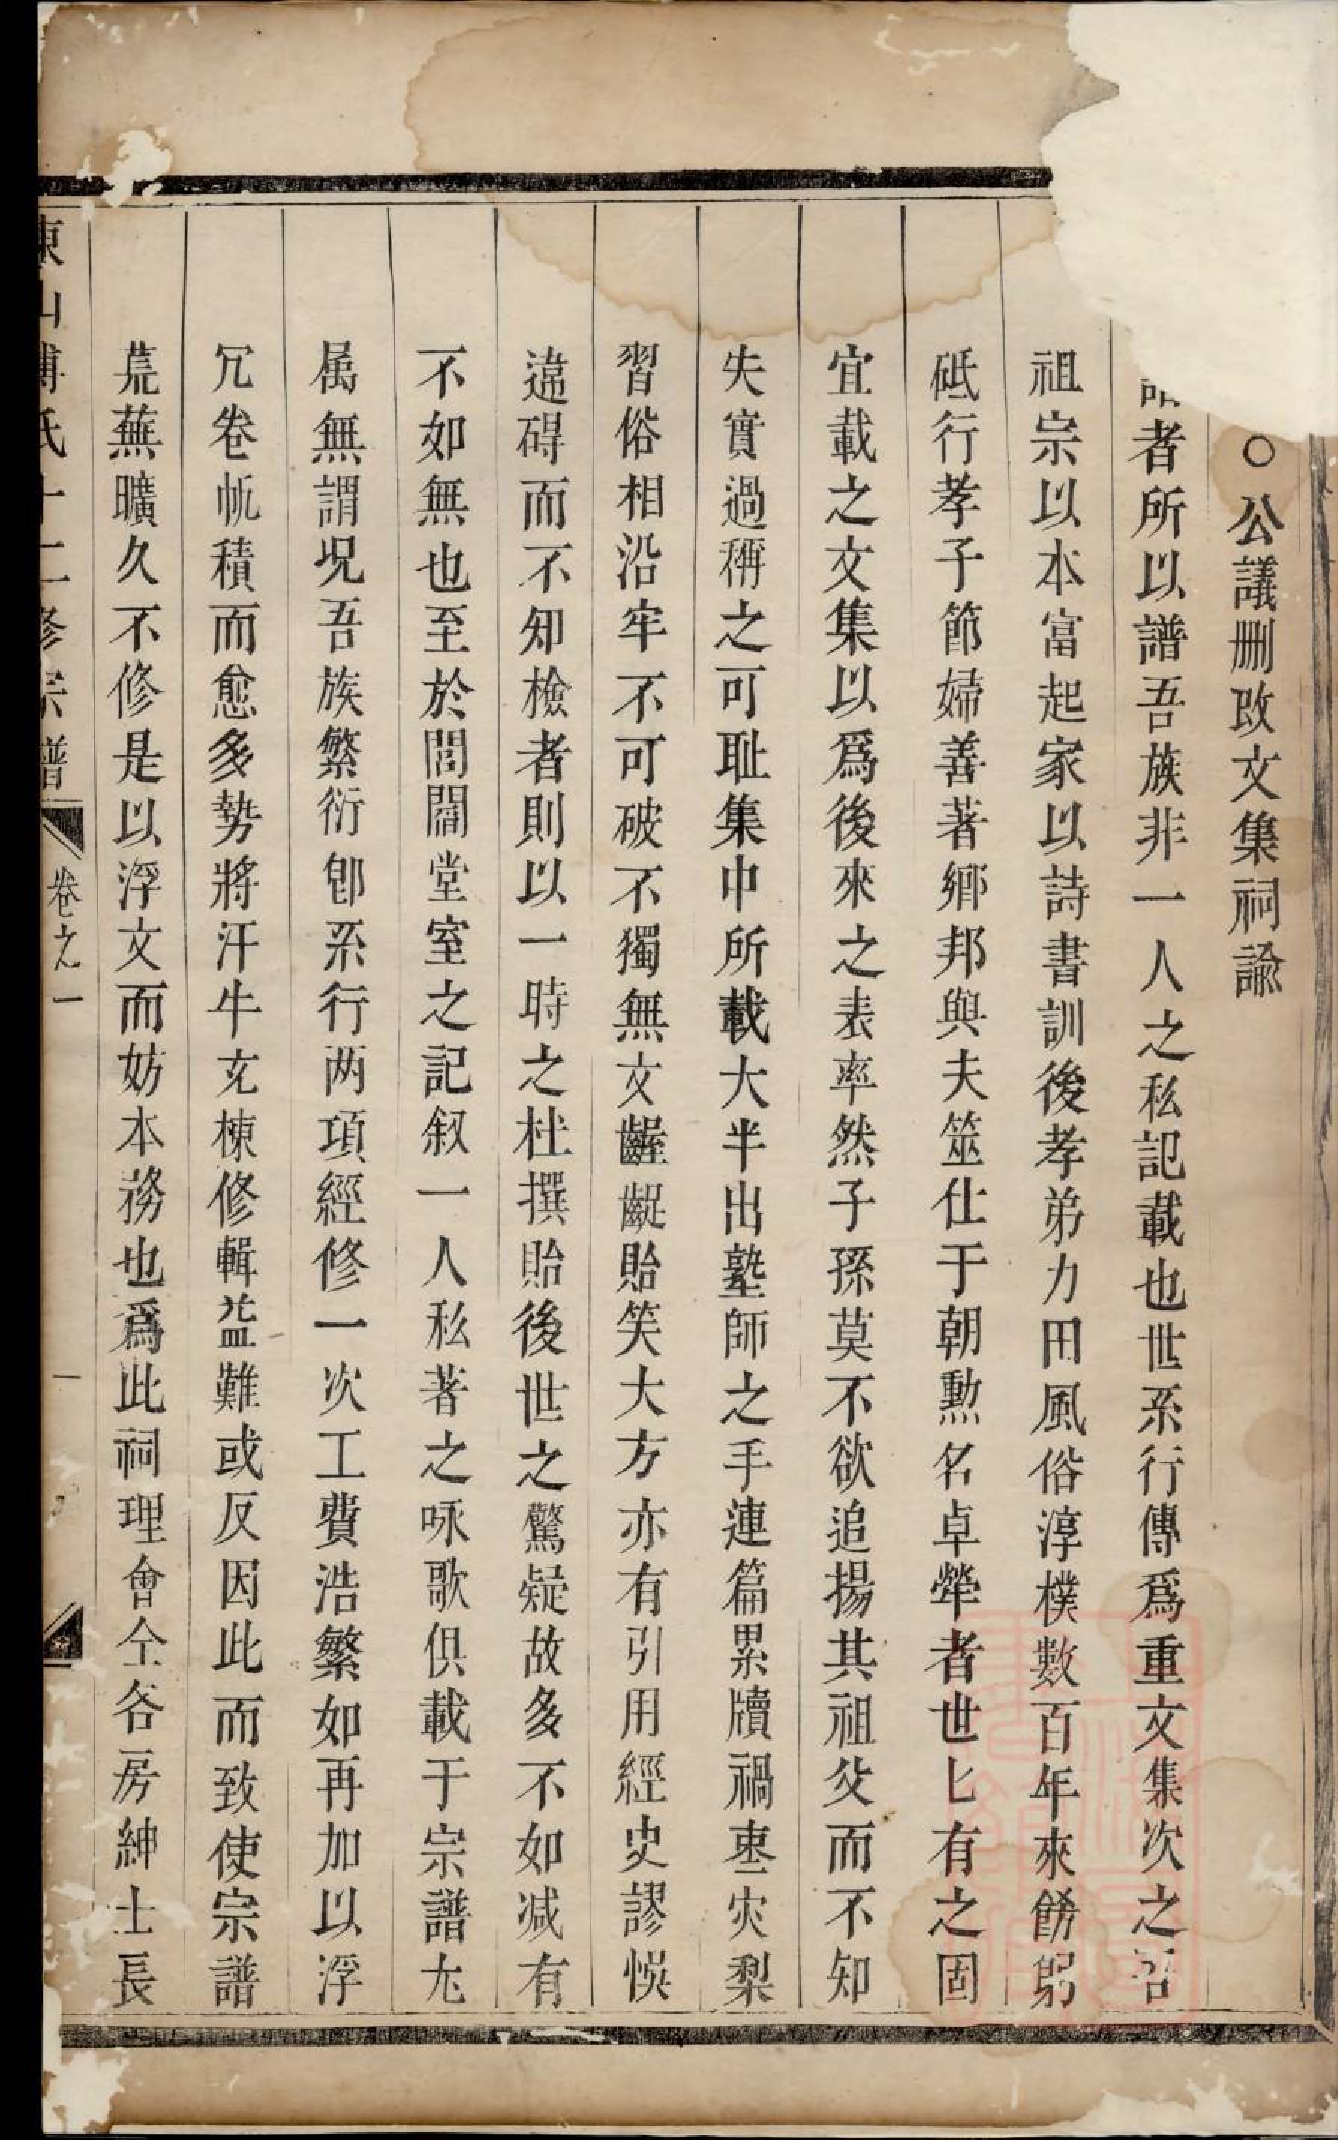 ○公議刪改文集祠諭
譜者所以譜吾族非一人之私記載也世系行傳爲重文集次之吾
祖宗以本富起家以詩書訓後孝弟力田風俗淳樸數百年來餝躬
砥行孝子節婦善著鄉邦與夫筮仕于朝勲名卓犖者世匕有之固
宜載之文集以爲後來之表率然子孫莫不欲追揚其祖父而不知
失實過稱之可耻集中所載大半出塾師之手連篇累牘禍棗灾梨
習俗相沿牢不可破不獨無文齷齪貽笑大方亦有引用經史謬悞
違碍而不知檢者則以一時之杜撰貽後世之驚疑故多不如减有
不如無也至於閭閻堂室之記叙一人私著之咏歌俱載于宗譜尢
属無謂况吾族繁衍卽系行两項經修一次工費浩繁如再加以浮
冗卷帙積而愈多勢將汗牛充棟修輯益難或反因此而致使宗譜
荒蕪曠久不修是以浮文而妨本務也爲此祠理會仝各房紳士長
東山傅氏十二修宗譜 卷之一 一